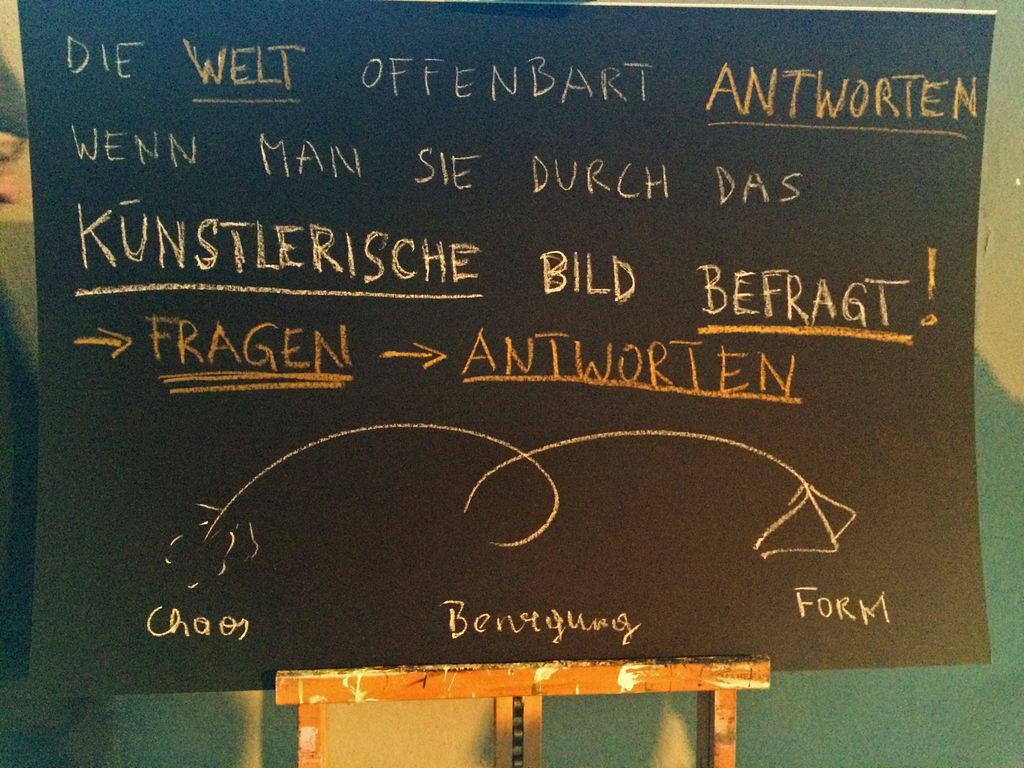 DIE WELT OFFENBART ANTWORTEN
WENN MAN SIE DURCH DAS
KÜNSTLERISCHE BILD BEFRAGT!
→ FRAGEN → ANTWORTEN
Chaos Bewegung FORM